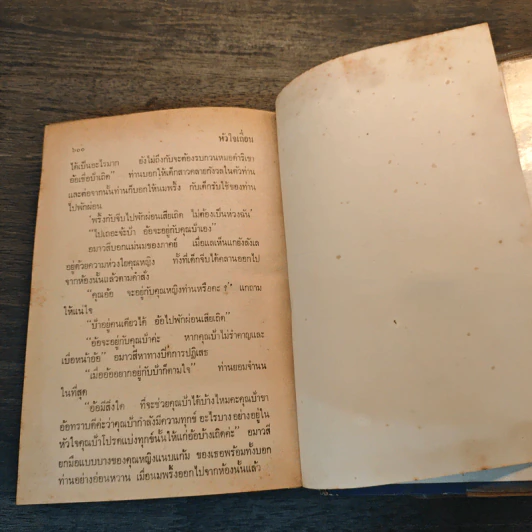 ๖๑๑ หัวใจเถื่อน
ได้เป็นอะไรมาก ยังไม่ถึงกับจะต้องรบกวนหมอดำริเขา
อ้อเชื่อป้าเถิด” ท่านบอกให้เด็กสาวคลายกังวลในตัวท่าน
และต่อจากนั้นท่านก็บอกให้นมพริ้ง กับเด็กรับใช้ของท่าน
ไปพักผ่อน
“พริ้งกับจีบไปพักผ่อนเสียเถิด ไม่ต้องเป็นห่วงฉัน”
“ไปเถอะจ้ะป้า อ้อจะอยู่กับคุณป้าเอง”
อมาวสีบอกแม่นมของภาคย์ เมื่อแลเห็นแกยังลังเล
อยู่ด้วยความห่วงใยคุณหญิง ทั้งที่เด็กจีบได้คลานออกไป
จากห้องนั้นแล้วตามคำสั่ง
“คุณอ้อ จะอยู่กับคุณหญิงท่านหรือคะ” แกถาม
ให้แน่ใจ
“ป้าอยู่คนเดียวได้ อ้อไปพักผ่อนเสียเถิด”
“อ้อจะอยู่กับคุณป้าค่ะ หากคุณป้าไม่รำคาญและ
เบื่อหน้าอ้อ” อมาวสีหาทางปิดการปฏิเสธ
“เมื่ออ้ออยากอยู่กับป้าก็ตามใจ” ท่านยอมจำนน
ในที่สุด
“อ้อมีสิ่งใด ที่จะช่วยคุณป้าได้บ้างไหมคะคุณป้าขา
อ้อทราบดีค่ะว่าคุณป้ากำลังมีความทุกข์ อะไรบางอย่างอยู่ใน
หัวใจคุณป้าโปรดแบ่งทุกข์นั้นให้แก่อ้อบ้างเถิดค่ะ” อมาวสี
ยกมือแบบบางของคุณหญิงแนบแก้ม ของเธอพร้อมทั้งบอก
ท่านอย่างอ่อนหวาน เมื่อนมพริ้งออกไปจากห้องนั้นแล้ว